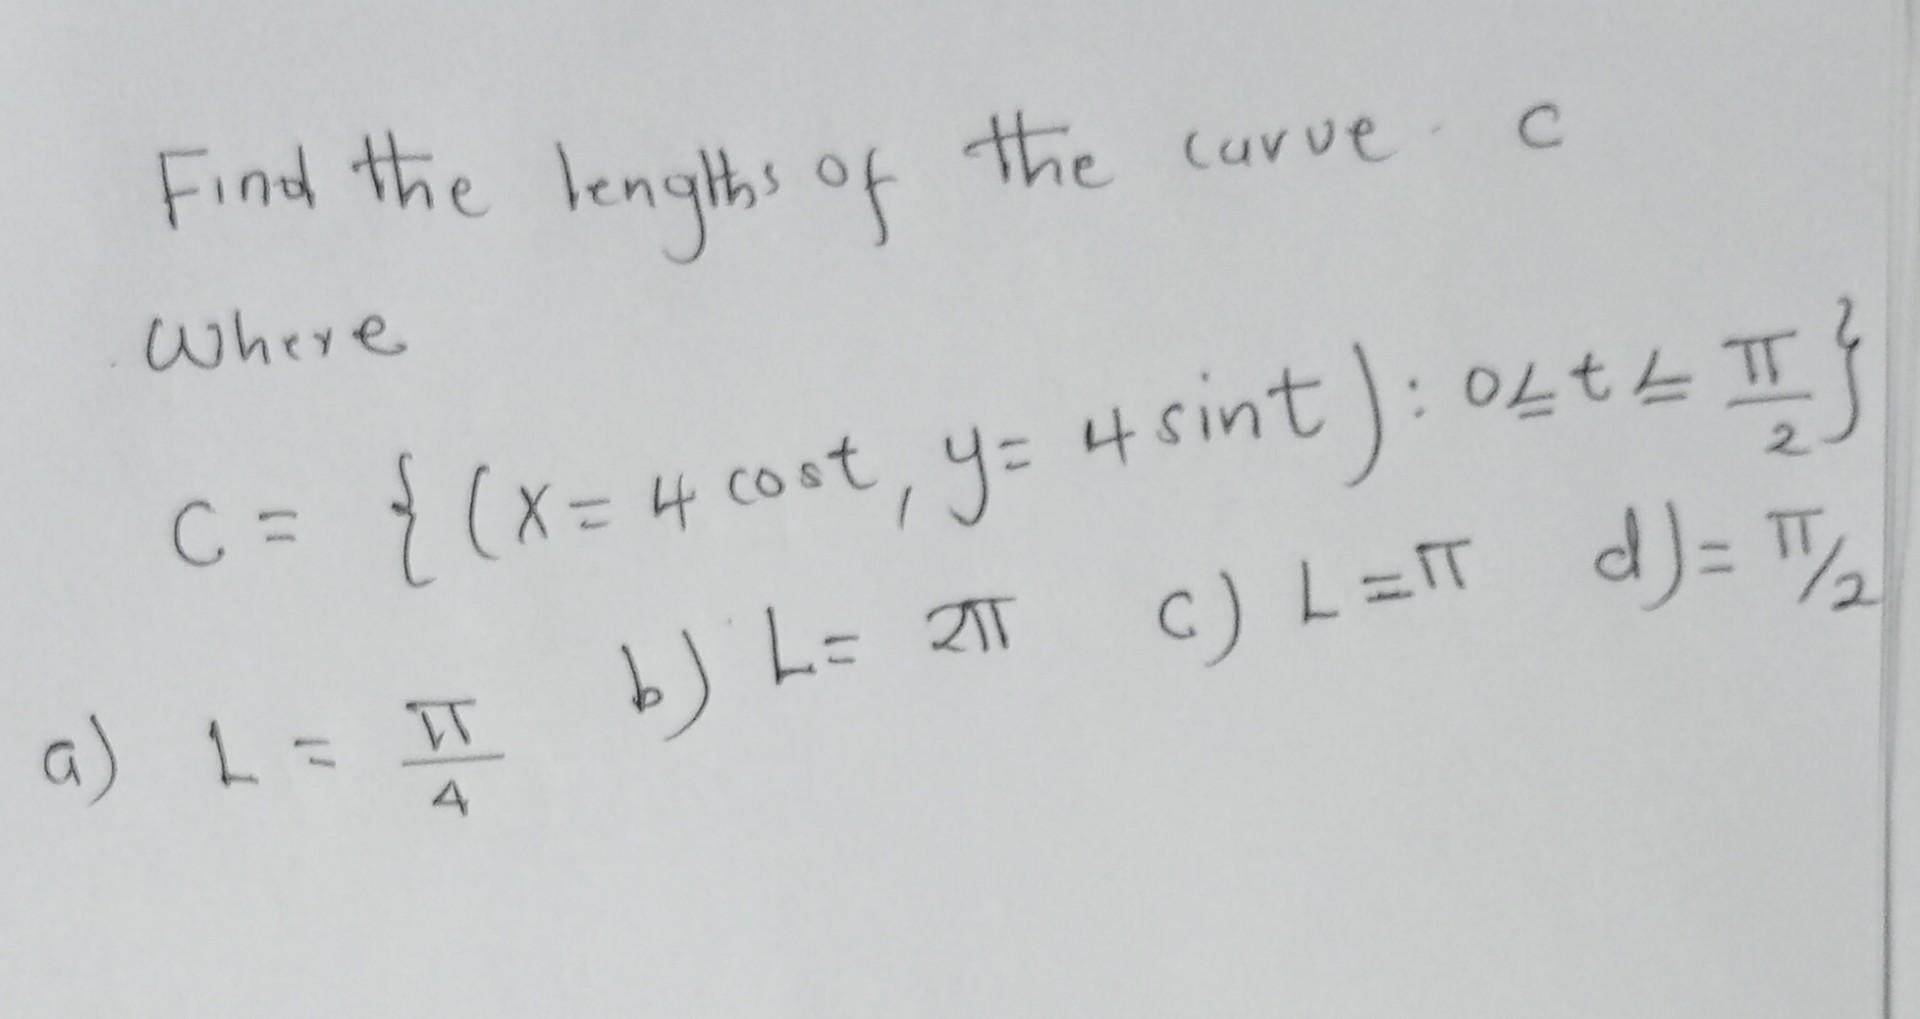 Find the lengths of the curve c
Where
C = { (x = 4 cost, y = 4 sint) : 0 ≤ t ≤ π/2 }
a) L = π/4 b) L = 2π c) L = π d) = π/2